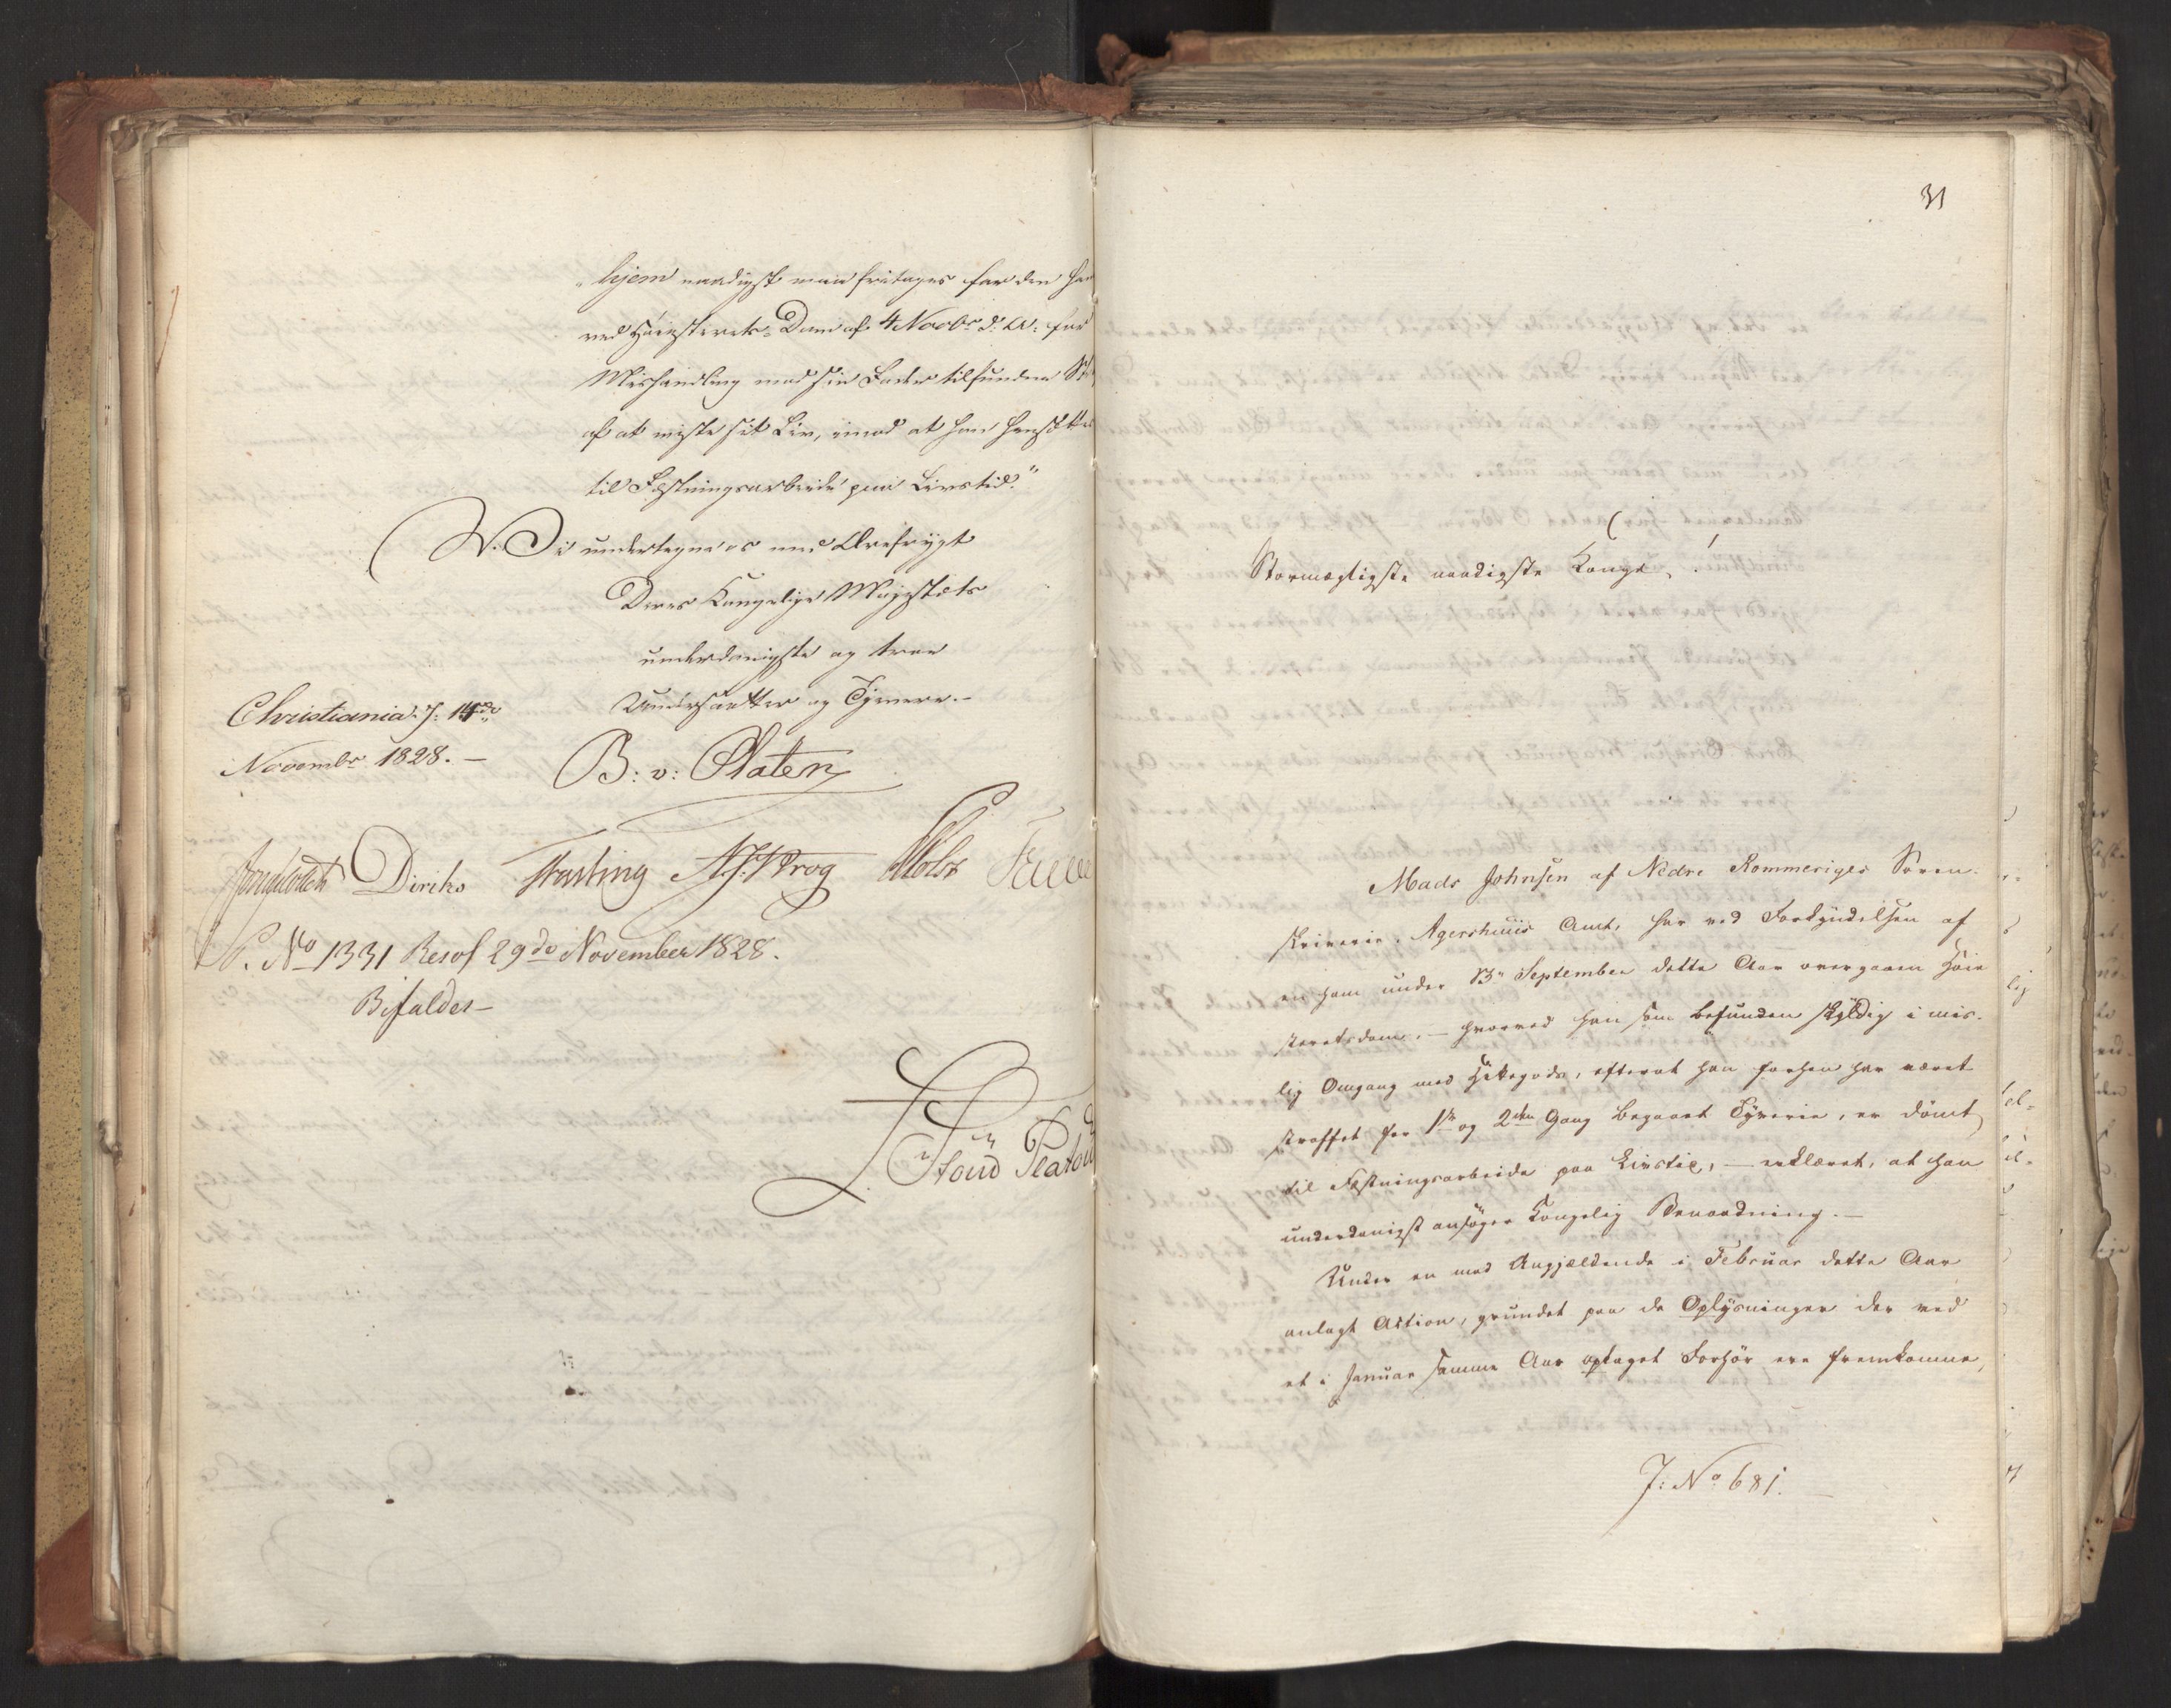 „hjem naadigst maa fritages for den ham
ved Höiesterets-Dom af 4 Novbr d: A: for
Mishandling mod sin Fader tilfundne Straf
af at miste sit Liv, imod at han hensættes
til Fæstningsarbeide paa Livstid."
Vi undertegne os med Ærefrygt
Deres Kongelige Majestæts
underdanigste og troe
Undersaatter og Tjenere.-
Christiania d: 14de
Novembr 1828. -
B: v: Platen
Diriks Fasting N. J. Krog
P. No 1331 Resol 29de November 1828.
Bifaldes-
31
Stormægtigste naadigste Konge!
Mads Johnsen af Nedre Rommeriges Soren-
skriverie, Agershuus Amt, har ved Forkyndelsen af
en ham under 13de September dette Aar overgaaen Höie-
steretsdom, - hvorved han som befunden skyldig i mis-
lig Omgang med Hittegods, efterat han forhen har været
straffet for 1ste og 2den Gang begaaet Tyverie, er dömt
til Fæstningsarbeide paa Livstid, - erklæret, at han
underdanigst ansöger Kongelig Benaadning. -
Under en mod Angjældende i Februar dette Aar
anlagt Action, grundet paa de Oplysninger der ved
et i Januar samme Aar optaget Forhör ere fremkomne,
J: No 681. -